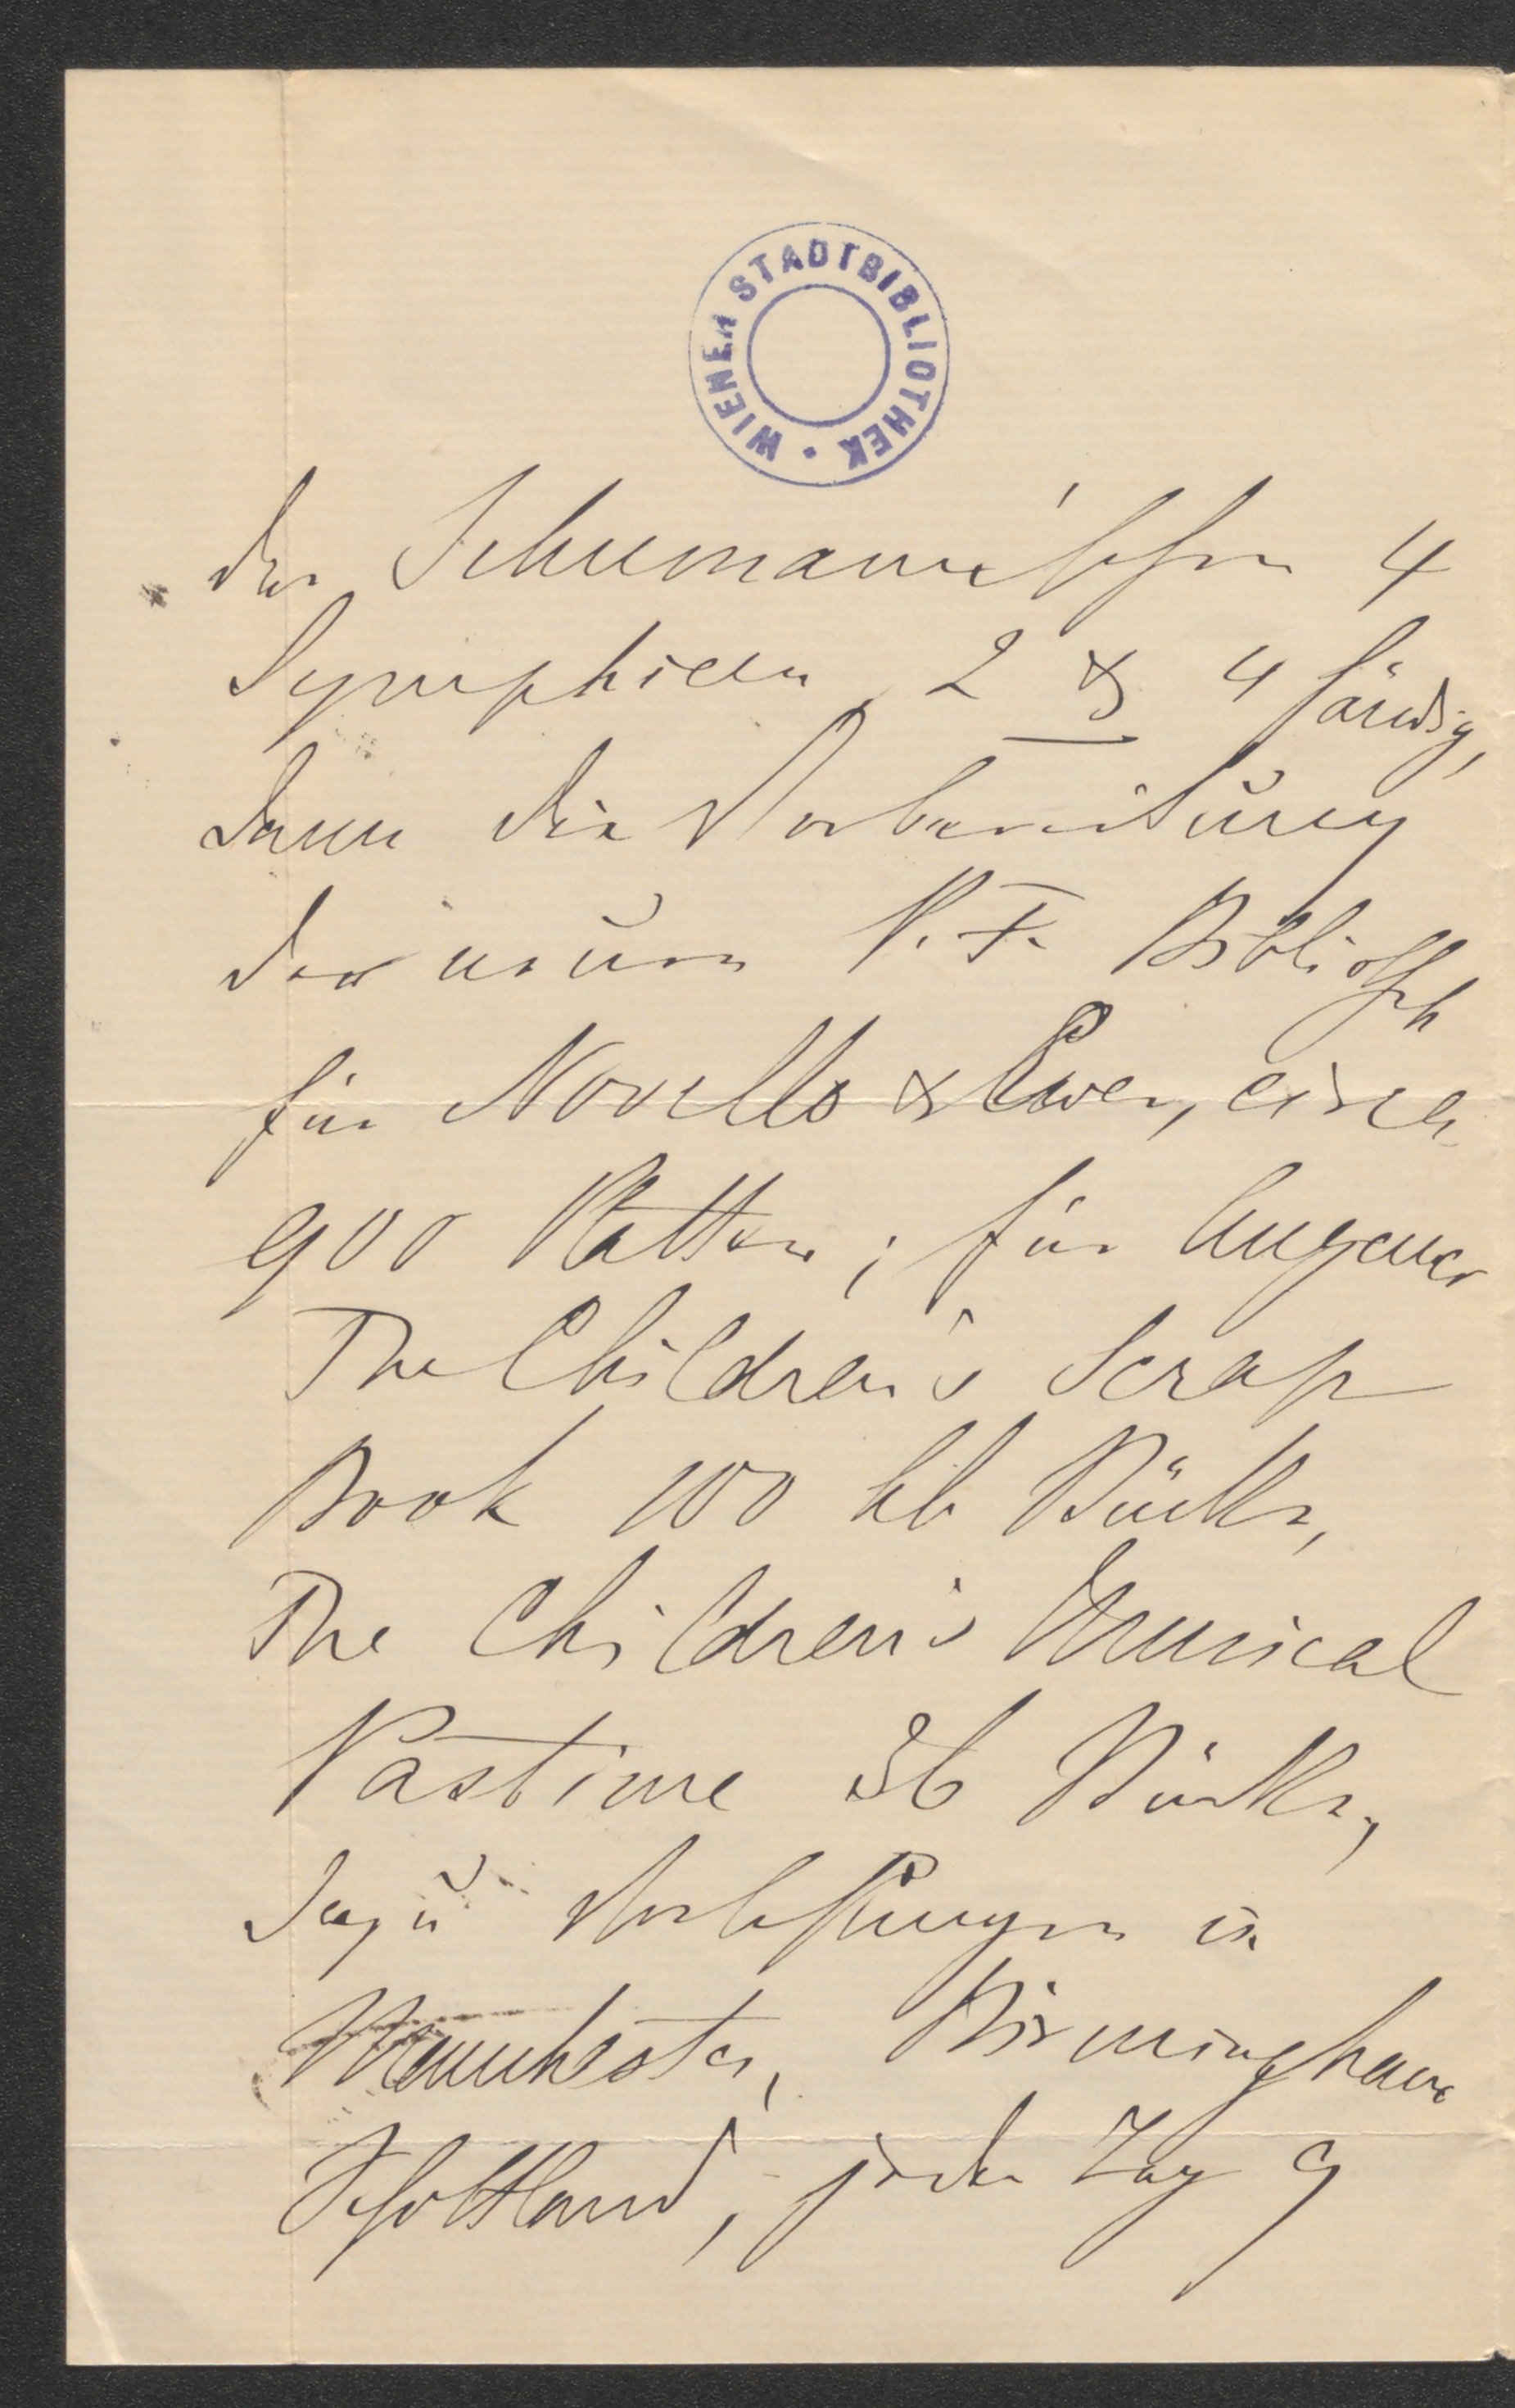 WIENER STADTBIBLIOTHEK
der Schumann'schen 4
Symphieen 2 & 4 händig,
dann die Vorbereitung
der neuen P. F. Biblioth
für Novello & Ewer, circa
900 Platten; für Augener
The Children's Scrap
Book 100 kl Stücke,
The Children's Musical
Pastime 36 Stücke,
dazu Vorlesungen in
Manchester, Birmingham
Schottland, jeden Tag 9